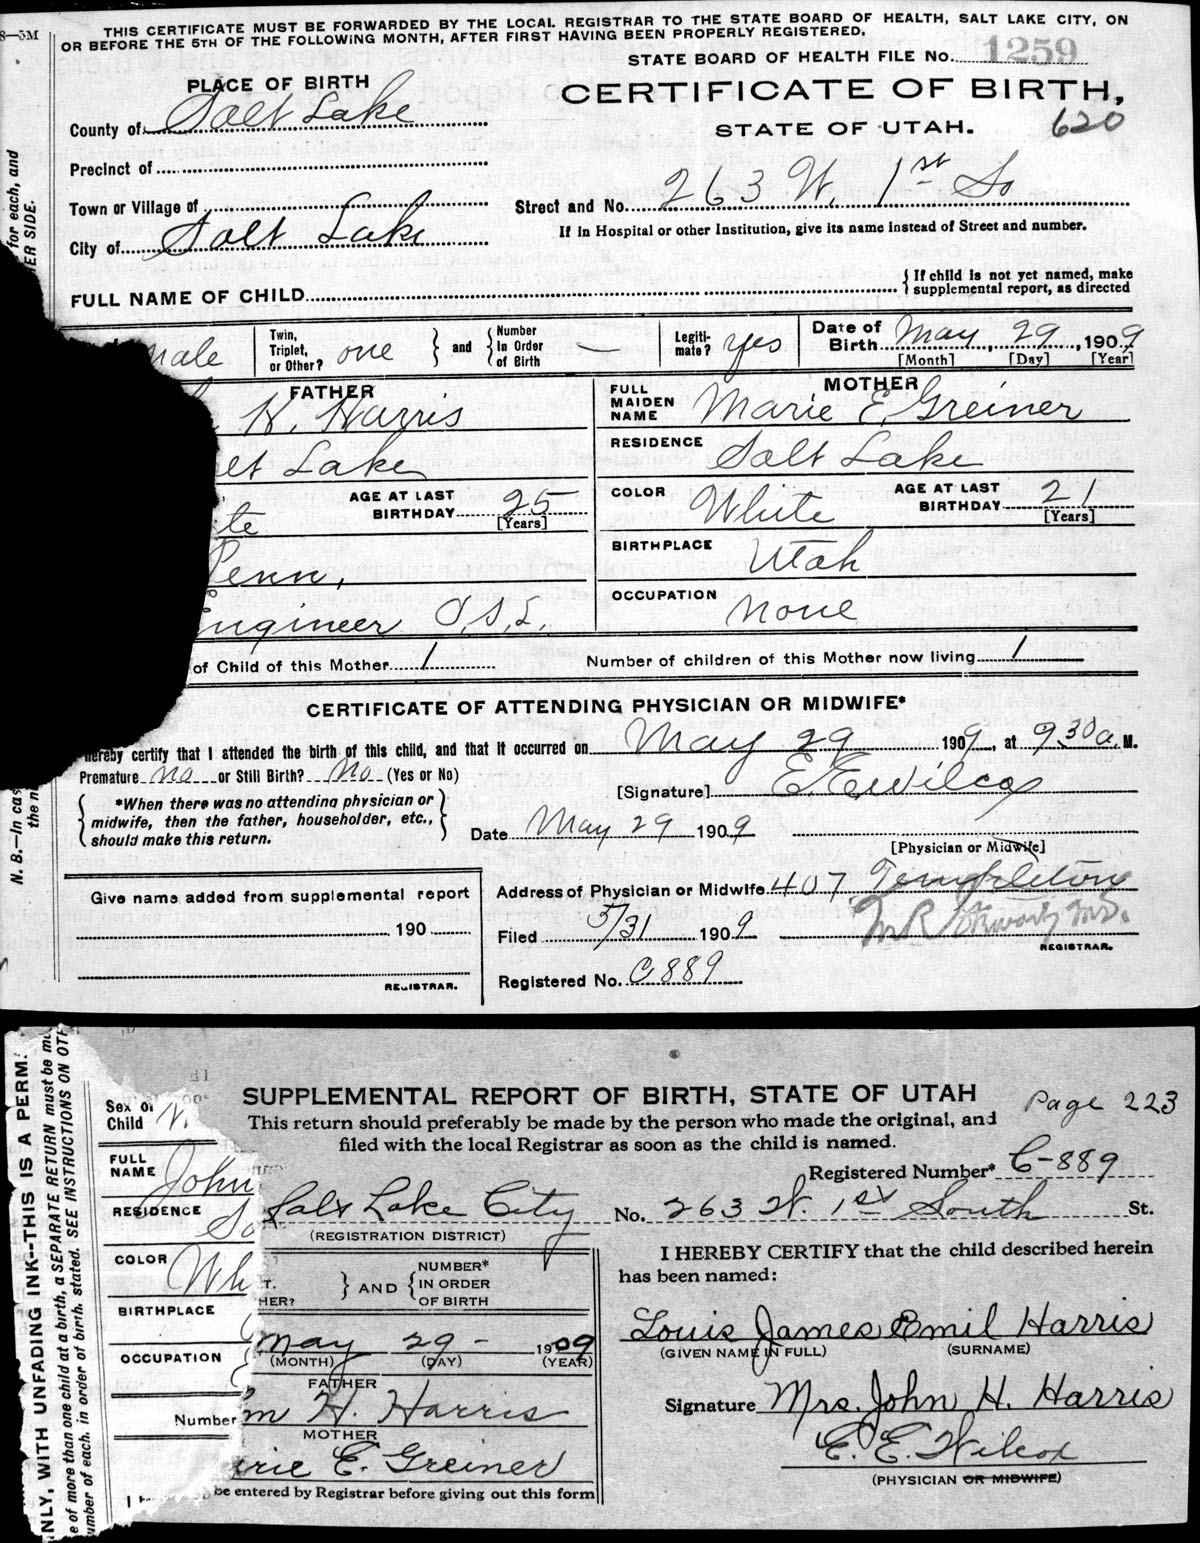 8—5M
THIS CERTIFICATE MUST BE FORWARDED BY THE LOCAL REGISTRAR TO THE STATE BOARD OF HEALTH, SALT LAKE CITY, ON
OR BEFORE THE 5TH OF THE FOLLOWING MONTH, AFTER FIRST HAVING BEEN PROPERLY REGISTERED.
STATE BOARD OF HEALTH FILE No. 1259
PLACE OF BIRTH
CERTIFICATE OF BIRTH,
County of Salt Lake
STATE OF UTAH. 620
Precinct of
Town or Village of
Street and No. 263 W. 1st So
City of Salt Lake
If in Hospital or other Institution, give its name instead of Street and number.
FULL NAME OF CHILD
{ If child is not yet named, make
supplemental report, as directed
for each, and
HER SIDE.
male
Twin, Triplet, or Other? one } and { Number In Order of Birth —
Legiti-mate? yes
Date of Birth May, 29, 1909
[Month] [Day] [Year]
FATHER
MOTHER
H. Harris
FULL MAIDEN NAME Marie E. Greiner
lt Lake
RESIDENCE Salt Lake
te AGE AT LAST BIRTHDAY 25 [Years]
COLOR White AGE AT LAST BIRTHDAY 21 [Years]
Penn,
BIRTHPLACE Utah
ngineer O.S.L.
OCCUPATION none
of Child of this Mother 1 Number of children of this Mother now living 1
CERTIFICATE OF ATTENDING PHYSICIAN OR MIDWIFE*
hereby certify that I attended the birth of this child, and that it occurred on May 29 1909, at 930 a. M.
Premature no or Still Birth? No (Yes or No)
[Signature] E. E. Wilcox
{ *When there was no attending physician or
midwife, then the father, householder, etc.,
should make this return. }
Date May 29 1909
[Physician or Midwife]
N. B.—In cas
the n
Give name added from supplemental report
190
REGISTRAR.
Address of Physician or Midwife 407 Templeton
Filed 5/31 1909
REGISTRAR.
Registered No. C 889
NLY, WITH UNFADING INK--THIS IS A PERM
e of more than one child at a birth, a SEPARATE RETURN must be m
umber of each, in order of birth, stated. SEE INSTRUCTIONS ON OTH
SUPPLEMENTAL REPORT OF BIRTH, STATE OF UTAH
Page 223
This return should preferably be made by the person who made the original, and
filed with the local Registrar as soon as the child is named.
Registered Number* C-889
Sex of Child
FULL NAME John
RESIDENCE Sa
COLOR Wh
BIRTHPLACE
OCCUPATION
Number
Salt Lake City No. 263 W. 1st South St.
(REGISTRATION DISTRICT)
T.
HER? } AND { NUMBER* IN ORDER OF BIRTH
May 29- 1909
(MONTH) (DAY) (YEAR)
FATHER
H. Harris
MOTHER
rie E. Greiner
be entered by Registrar before giving out this form
I HEREBY CERTIFY that the child described herein
has been named:
Louis James Emil Harris
(GIVEN NAME IN FULL) (SURNAME)
Signature Mrs. John H. Harris
E. E. Wilcox
(PHYSICIAN OR MIDWIFE)